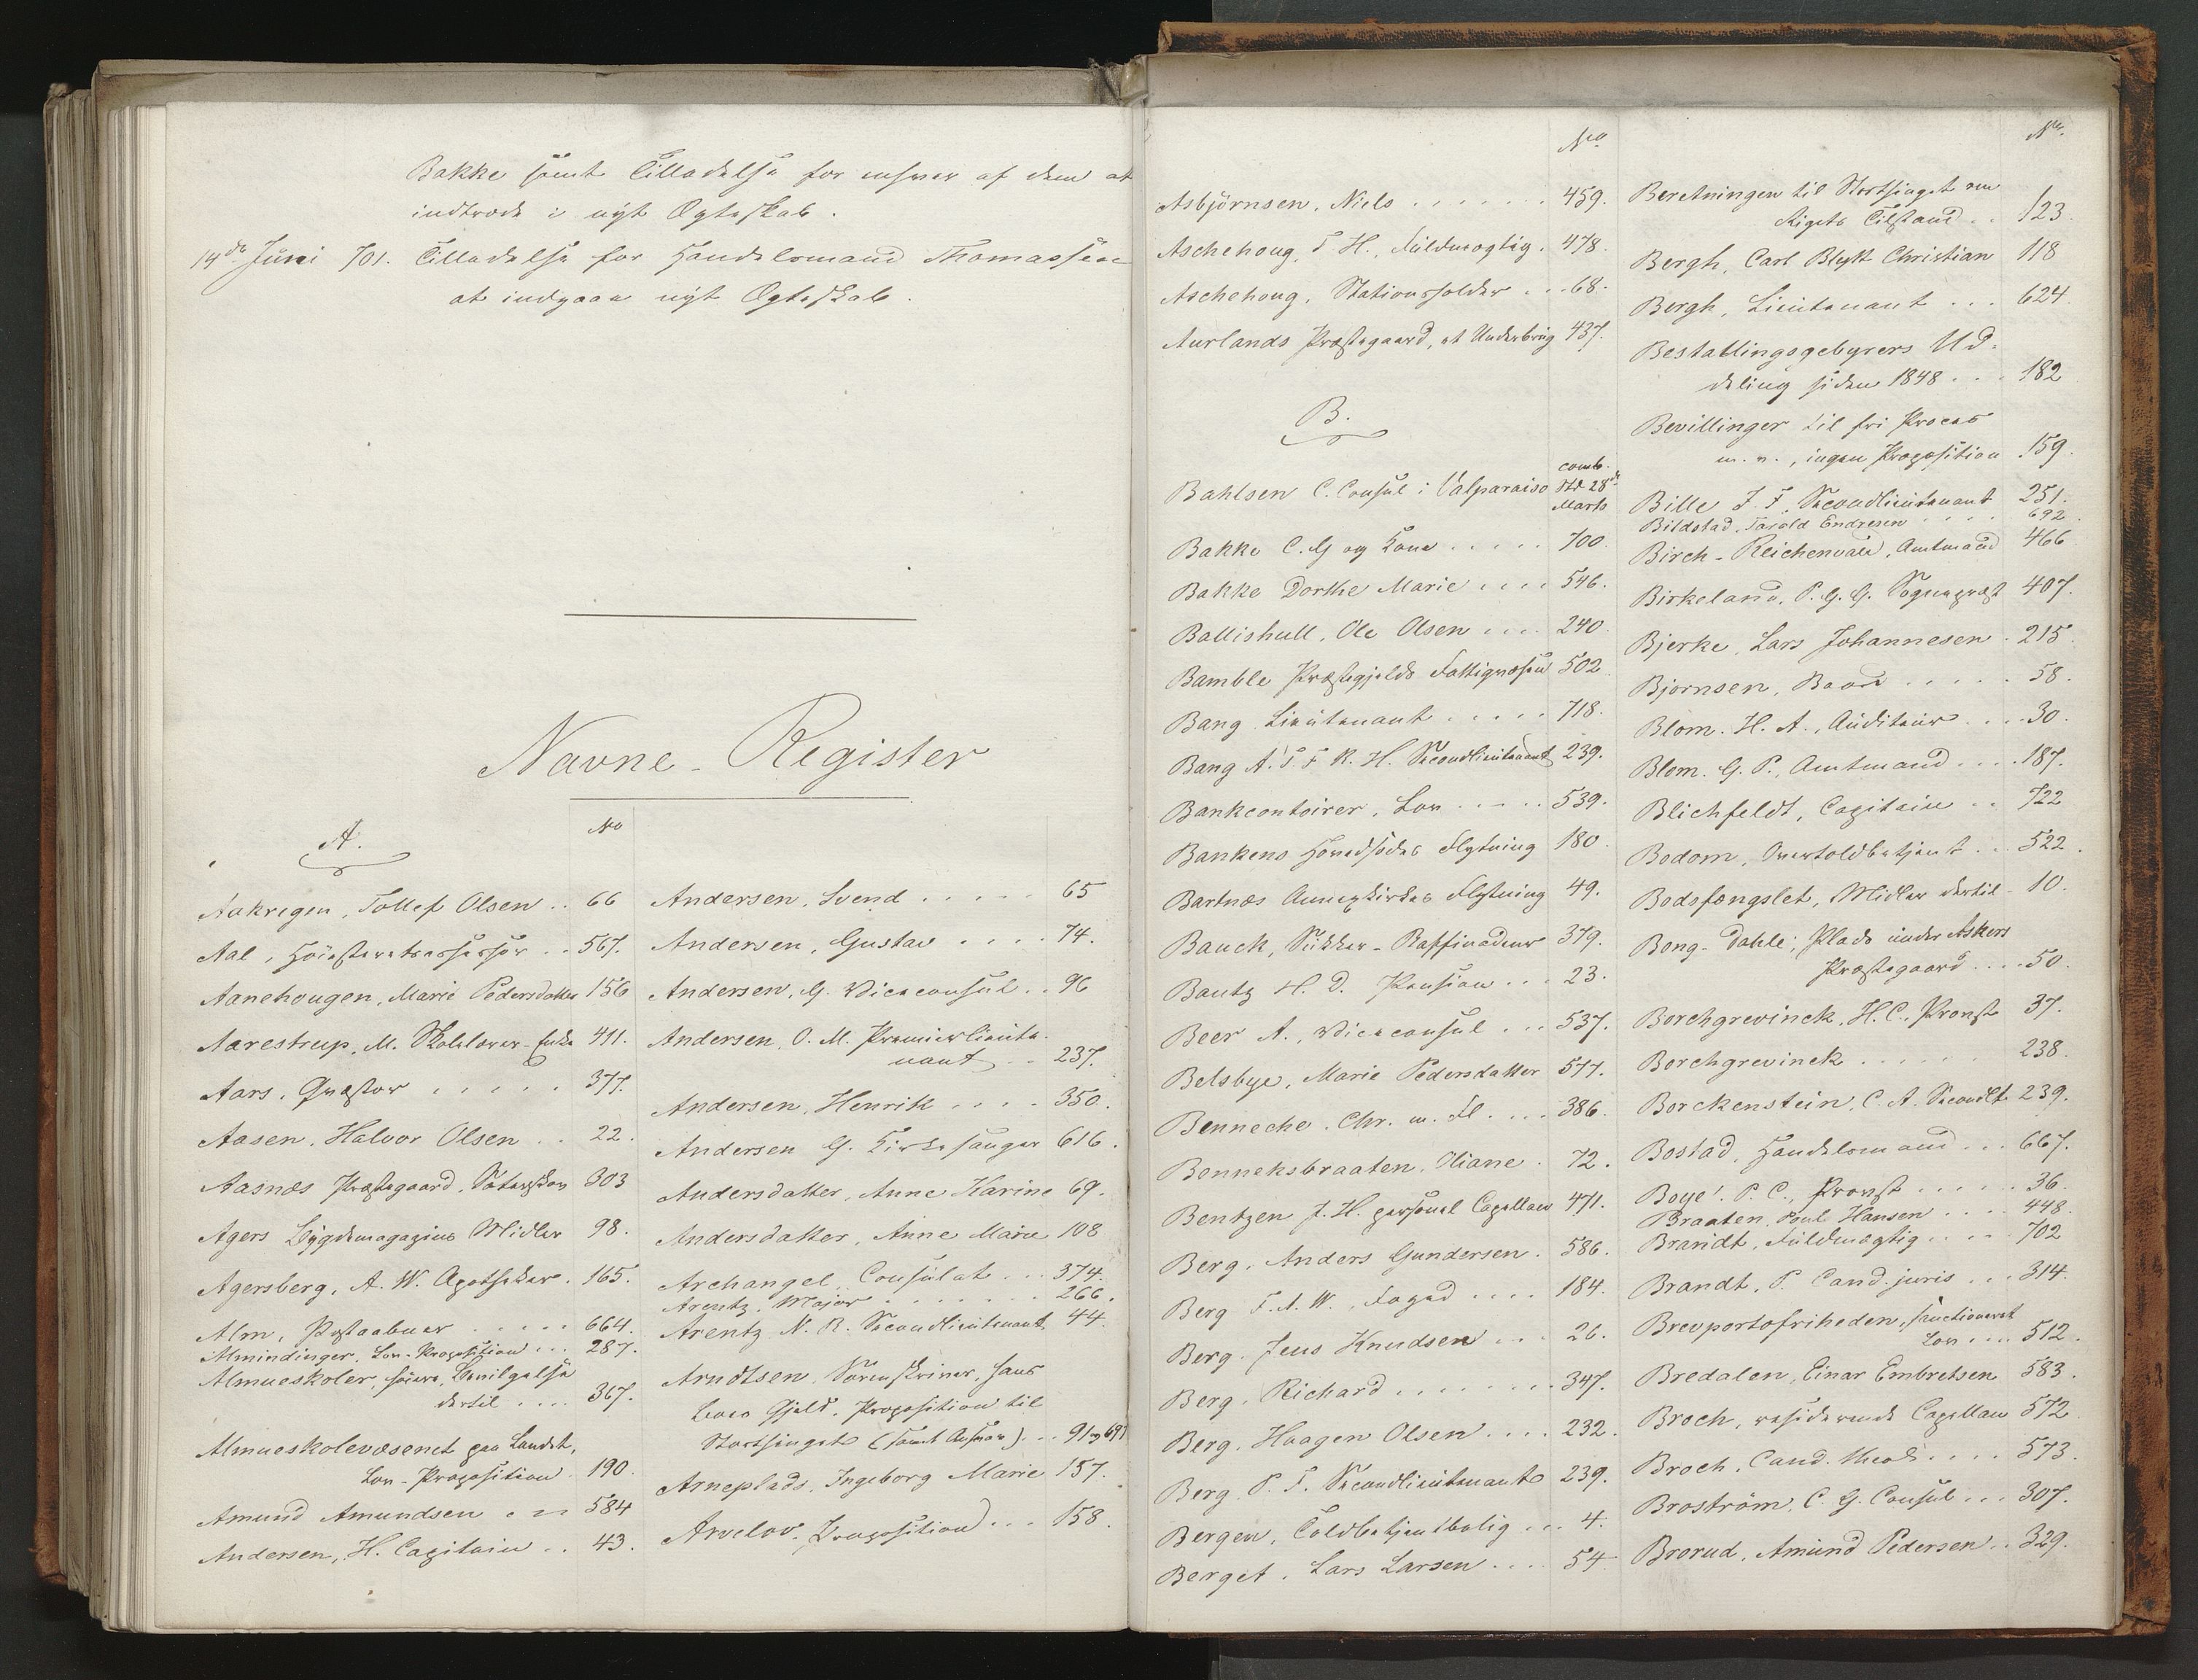 Bakke samt Tilladelse for enhver af dem at
indtræde i nyt Ægteskab.
14de Juni 701. Tilladelse for Handelsmand Thomassen
at indgaae nyt Ægteskab.
Navne-Register
A.
No
Aakregen, Tollef Olsen .. 66
Aal, Höiesteretsassessor .. 567.
Aanehougen, Marie Pedersdatter 156
Aarestrup, M. Skolelærer-Enke 411.
Aars, Qvæstor ..... 377.
Aasen, Halvor Olsen .. 22.
Aasnæs Præstegaard, 303
Agers Bygdemagazins Midler 98.
Agersberg, A. W. Apotheker. 165.
Alm, Postaabner ..... 664.
Almindinger, Lov-Proposition ... 287.
Almueskoler, höiere, Bevilgelse
dertil .... 367.
Almueskolevæsenet paa Landet,
Lov-Proposition. 190.
Amund Amundsen ... 584
Andersen, H. Capitain .. 43.
Andersen, Svend ..... 65
Andersen, Gustav .... 74.
Andersen, G. Viceconsul .. 96
Andersen, O. M. Premierlieute-
nant .. 237.
Andersen, Henrik .... 350.
Andersen G. Kirkesanger 616.
Andersdatter, Anne Karine 69.
Andersdatter, Anne Marie 108
Archangel, Consulat ... 374.
Arentz, Major ....... 266.
Arentz N. R. Secondlieutenant. 44.
Arndtsen, Sorenskriver, hans
Boes Gjæld. Proposition til
Storthinget (samt Ansvar) .. 91 og 691
Arneplads, Ingeborg Marie 157.
Arvelov, Proposition ... 158.
No
Asbjörnsen, Niels ....... 459.
Aschehoug, T. H., Fuldmægtig. 478.
Aschehoug, Stationsholder ... 68.
Aurlands Præstegaard, et Underbrug 437.
B.
Bahlsen C. Consul i Valparaiso comb. Std 28de Marts
Bakke C. G og Kone ..... 700.
Bakke Dorthe Marie .... 546.
Ballishull, Ole Olsen .... 240.
Bamble Præstegjelds Fattigvæsen 502
Bang Lieutenant ..... 718.
Bang A. T. F. R. H. Secondlieutenant 239.
Bankcontoirer, Lov ..... 539.
Bankens Hovedsædes Flytning 180.
Bartnæs Annexkirkes Flytning 49.
Bauck, Sukker-Raffinadeur 379.
Bautz H. D. Pension ... 23.
Beer A., Viceconsul ... 537.
Belsbye, Marie Pedersdatter 577.
Benneche, Chr. m. Fl .... 386.
Benneksbraaten, Oliane. 72.
Bentzen J. H. personel Capellan 471.
Berg, Anders Gundersen. 586.
Berg T. A. W., Foged .... 184.
Berg, Jens Knudsen ... 26.
Berg, Richard ........ 347.
Berg, Haagen Olsen .... 232.
Berg, P. T. Secondlieutenant 239.
Bergen, Toldbetjentbolig ... 4.
Berget, Lars Larsen .... 54
No.
Beretningen til Storthinget om
Rigets Tilstand .. 123.
Bergh, Carl Blytt Christian 118
Bergh, Lieutenant ... 624.
Bestallingsgebyrers Ud-
deling siden 1848 ... 182
Bevillinger til fri Proces
m. v., ingen Proposition 159.
Bille J. F. Secondlieutenant 251.
Bildstad, Tarald Endresen .... 692
Birch-Reichenvald, Amtmand 466
Birkeland, P. G. G. Sognepræst 407.
Bjerke, Lars Johannesen. 215
Bjornsen, Baard ..... 58.
Blom. H. A., Auditeur ... 30.
Blom. G. P., Amtmand .... 187.
Blichfeldt, Capitain .. 722
Bodom, Overtoldbetjent .. 522.
Bodsfængslet, Midler dertil. 10.
Bong-Dahle, Plads under Askers
Præstegaard .... 50.
Borchgrevinck, H. C., Provst 37.
Borchgrevinck ...... 238.
Borckenstein, C. A. Secondlt 239.
Bostad, Handelsmand ... 667.
Boye, P. C., Provst ..... 36.
Braaten, Poul Hansen .... 448.
Brandt, Fuldmægtig .... 702
Brandt, P. Cand. juris ... 314.
Brevportofriheden, sanctioneret
Lov .... 512.
Bredalen, Einar Embretsen 583.
Broch, residerende Capellan 572
Broch, Cand. theol .... 573.
Broström, C. G. Consul ... 307.
Brorud, Amund Pedersen .. 329.